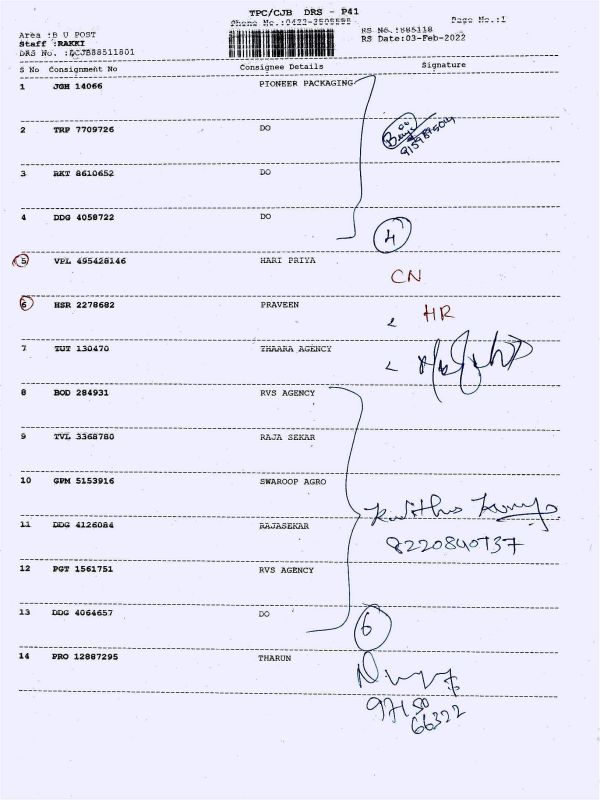 TPC/CJB DRS - P41
Phone No.:0422-3505555 Page No.:1
Area :B U POST RS No. :885118
Staff :RAKKI RS Date:03-Feb-2022
DRS No. :ACJB88511801
S No Consignment No Consignee Details Signature
1 JGH 14066 PIONEER PACKAGING
2 TRP 7709726 DO
3 RKT 8610652 DO
4 DDG 4058722 DO
4
5 VPL 495428146 HARI PRIYA
CN
6 HSR 2278682 PRAVEEN
HR
7 TUT 130470 THAARA AGENCY
8 BOD 284931 RVS AGENCY
9 TVL 3368780 RAJA SEKAR
10 GPM 5153916 SWAROOP AGRO
11 DDG 4126084 RAJASEKAR
8220840737
12 PGT 1561751 RVS AGENCY
13 DDG 4064657 DO
6
14 PRO 12887295 THARUN
97150
66322